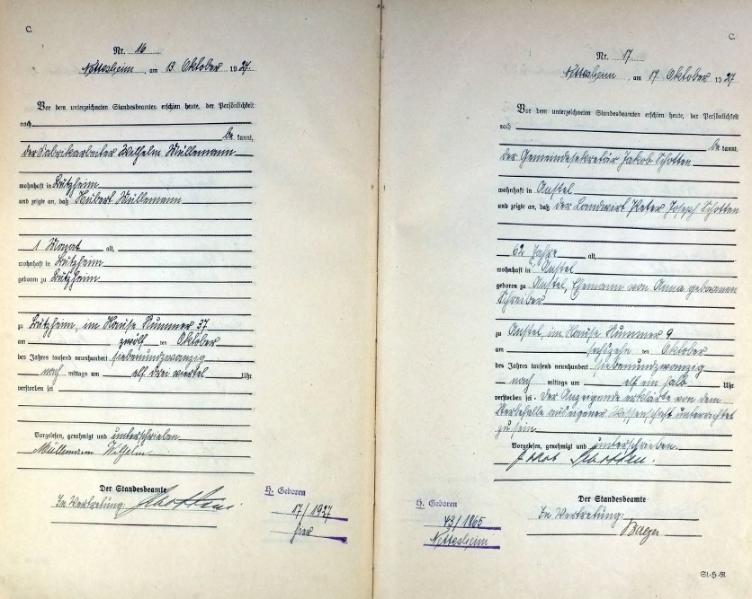 C.
Nr. 16
Nettesheim, am 13 Oktober 1927.
Vor dem unterzeichneten Standesbeamten erschien heute, der Persönlichkeit
nach
be kannt,
der Fabrikarbeiter Wilhelm Müllemann
wohnhaft in Butzheim
und zeigte an, daß Hubert Müllemann
1 Monat alt,
wohnhaft in Butzheim
geboren zu Butzheim
zu Butzheim, im Hause Nummer 37
am zwölf ten Oktober
des Jahres tausend neunhundert siebenundzwanzig
nach mittags um elf drei viertel Uhr
verstorben sei
Vorgelesen, genehmigt und unterschrieben
Müllemann Wilhelm
Der Standesbeamte
In Vertretung: Schotten
H. Geboren
17/1927
hier
C.
Nr. 17
Nettesheim, am 17 Oktober 1927
Vor dem unterzeichneten Standesbeamten erschien heute, der Persönlichkeit
nach
be kannt,
der Gemeindesekretär Jakob Schotten
wohnhaft in Anstel
und zeigte an, daß der Landwirt Peter Joseph Schotten
62 Jahre alt,
wohnhaft in Anstel
geboren zu Anstel, Ehemann von Anna geborenen
Schreiber
zu Anstel, im Hause Nummer 9
am sechzehn ten Oktober
des Jahres tausend neunhundert siebenundzwanzig
nach mittags um elf ein halb Uhr
verstorben sei. Der Anzeigende erklärte von dem
Sterbefalle aus eigener Wissenschaft unterrichtet
zu sein
Vorgelesen, genehmigt und unterschrieben.
Jakob Schotten.
Der Standesbeamte
In Vertretung:
Baezen
H. Geboren
43/1865
Nettesheim
St-H-R